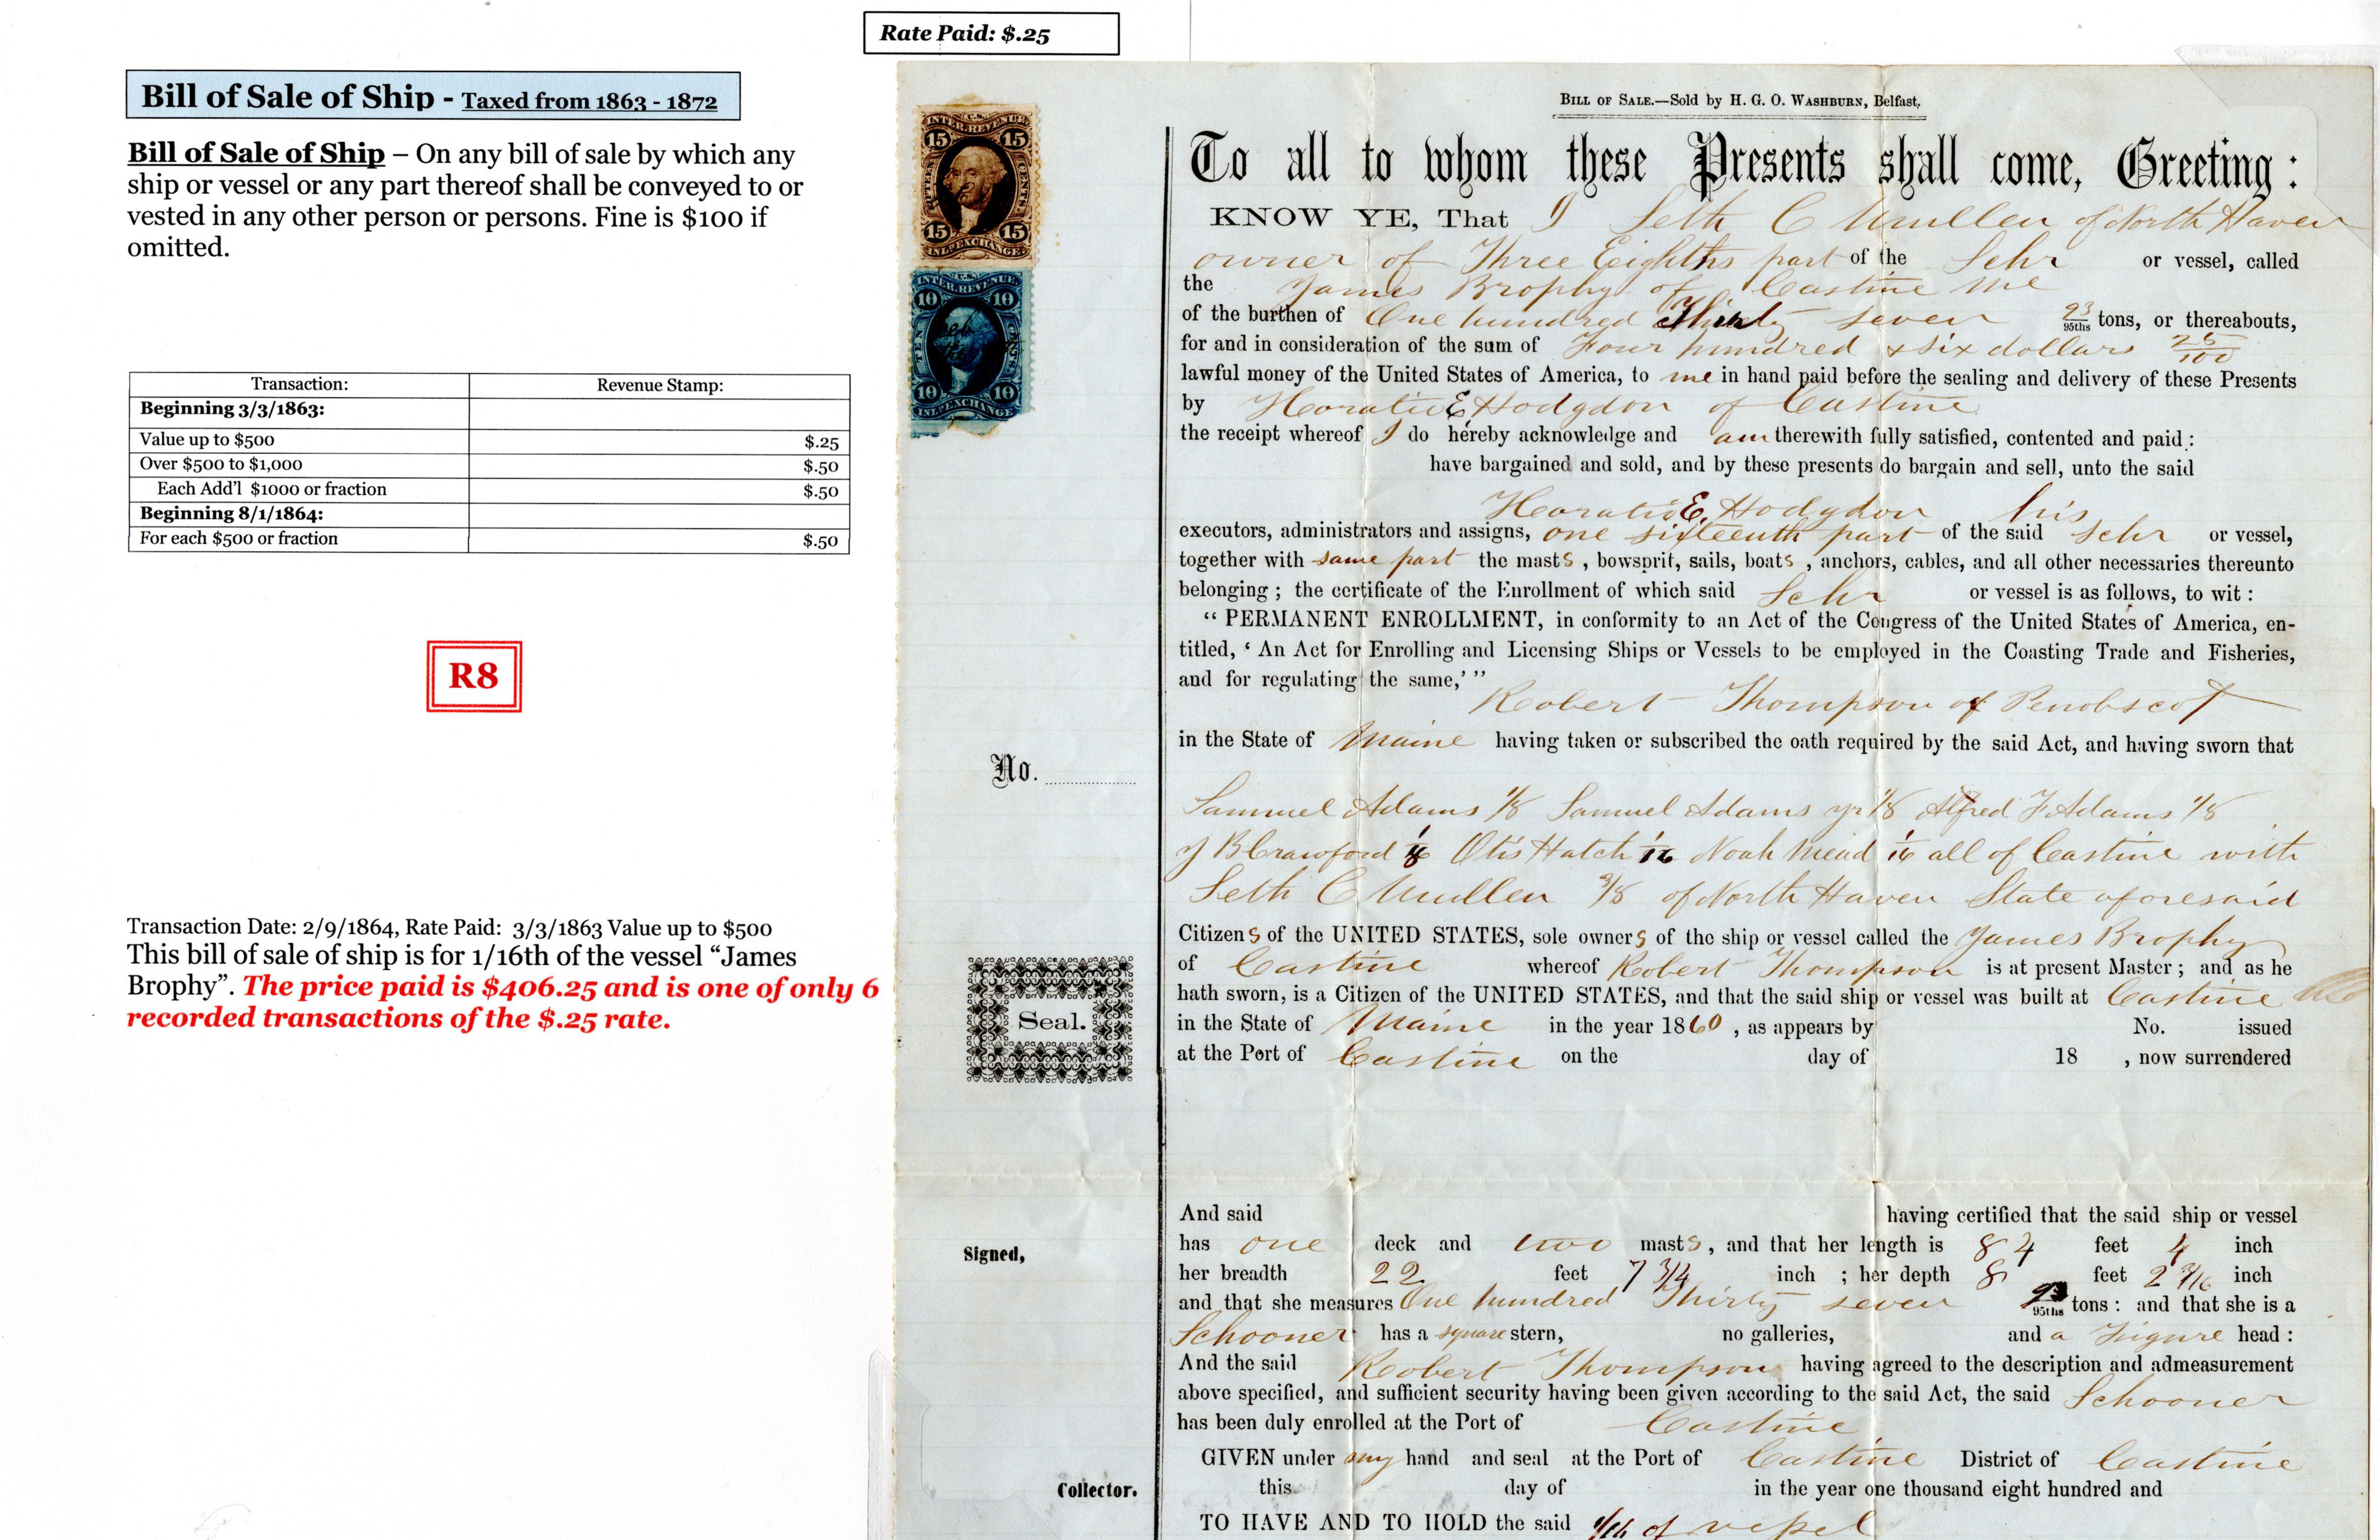 Rate Paid: $.25
Bill of Sale of Ship - Taxed from 1863 - 1872
Bill of Sale of Ship – On any bill of sale by which any
ship or vessel or any part thereof shall be conveyed to or
vested in any other person or persons. Fine is $100 if
omitted.
Transaction: Revenue Stamp:
Beginning 3/3/1863:
Value up to $500 $.25
Over $500 to $1,000 $.50
Each Add'l $1000 or fraction $.50
Beginning 8/1/1864:
For each $500 or fraction $.50
R8
Transaction Date: 2/9/1864, Rate Paid: 3/3/1863 Value up to $500
This bill of sale of ship is for 1/16th of the vessel “James
Brophy”. The price paid is $406.25 and is one of only 6
recorded transactions of the $.25 rate.
U.S.
INTER. REVENUE
15 15
FIFTEEN CENTS
15 15
INL. EXCHANGE
U.S.
INTER. REVENUE
10 10
TEN CENTS
10 10
INL. EXCHANGE
No.
Seal.
Signed,
Collector.
BILL OF SALE.—Sold by H. G. O. WASHBURN, Belfast.
To all to whom these Presents shall come, Greeting:
KNOW YE, That I Seth C Mullen of North Haven
owner of Three Eighths part of the Schr or vessel, called
the James Brophy of Castine Me
of the burthen of One hundred Thirty seven 93/95ths tons, or thereabouts,
for and in consideration of the sum of Four hundred & six dollars 25/100
lawful money of the United States of America, to me in hand paid before the sealing and delivery of these Presents
by Horatio E Hodgdon of Castine
the receipt whereof I do hereby acknowledge and am therewith fully satisfied, contented and paid:
have bargained and sold, and by these presents do bargain and sell, unto the said
Horatio E. Hodgdon his
executors, administrators and assigns, one sixteenth part of the said Schr or vessel,
together with same part the masts, bowsprit, sails, boats, anchors, cables, and all other necessaries thereunto
belonging; the certificate of the Enrollment of which said Schr or vessel is as follows, to wit:
“ PERMANENT ENROLLMENT, in conformity to an Act of the Congress of the United States of America, en-
titled, ‘ An Act for Enrolling and Licensing Ships or Vessels to be employed in the Coasting Trade and Fisheries,
and for regulating the same,’ ”
Robert Thompson of Penobscot
in the State of Maine having taken or subscribed the oath required by the said Act, and having sworn that
Samuel Adams 1/8 Samuel Adams Jr 1/8 Alfred F. Adams 1/8
J B Crawford 1/8 Otis Hatch 1/16 Noah Mead 1/16 all of Castine with
Seth C Mullen 3/8 of North Haven State aforesaid
Citizens of the UNITED STATES, sole owners of the ship or vessel called the James Brophy
of Castine whereof Robert Thompson is at present Master; and as he
hath sworn, is a Citizen of the UNITED STATES, and that the said ship or vessel was built at Castine
in the State of Maine in the year 1860, as appears by No. issued
at the Port of Castine on the day of 18 , now surrendered
And said having certified that the said ship or vessel
has one deck and two masts, and that her length is 84 feet 4 inch
her breadth 22 feet 7 3/4 inch ; her depth 8 feet 2 3/16 inch
and that she measures One hundred Thirty seven 93/95ths tons: and that she is a
Schooner has a square stern, no galleries, and a Figure head:
And the said Robert Thompson having agreed to the description and admeasurement
above specified, and sufficient security having been given according to the said Act, the said Schooner
has been duly enrolled at the Port of Castine
GIVEN under my hand and seal at the Port of Castine District of Castine
this day of in the year one thousand eight hundred and
TO HAVE AND TO HOLD the said 1/16 of vessel